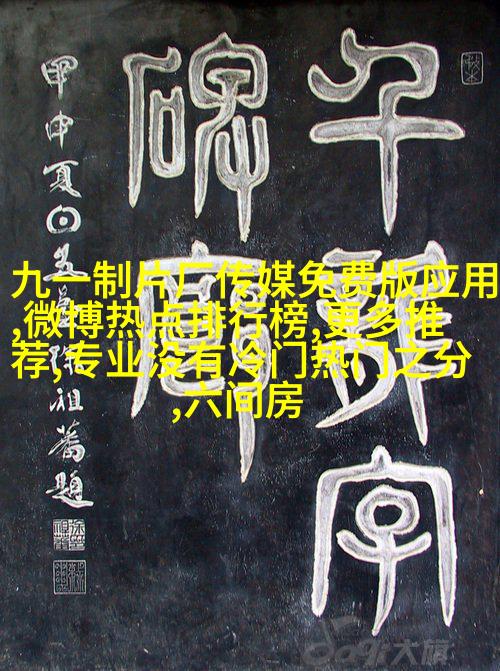 千
字
碑廊
甲申夏日
祖蕃題
九一制片厂传媒免费版应用
,微博热点排行榜,更多推
荐,专业没有冷门热门之分
,六间房